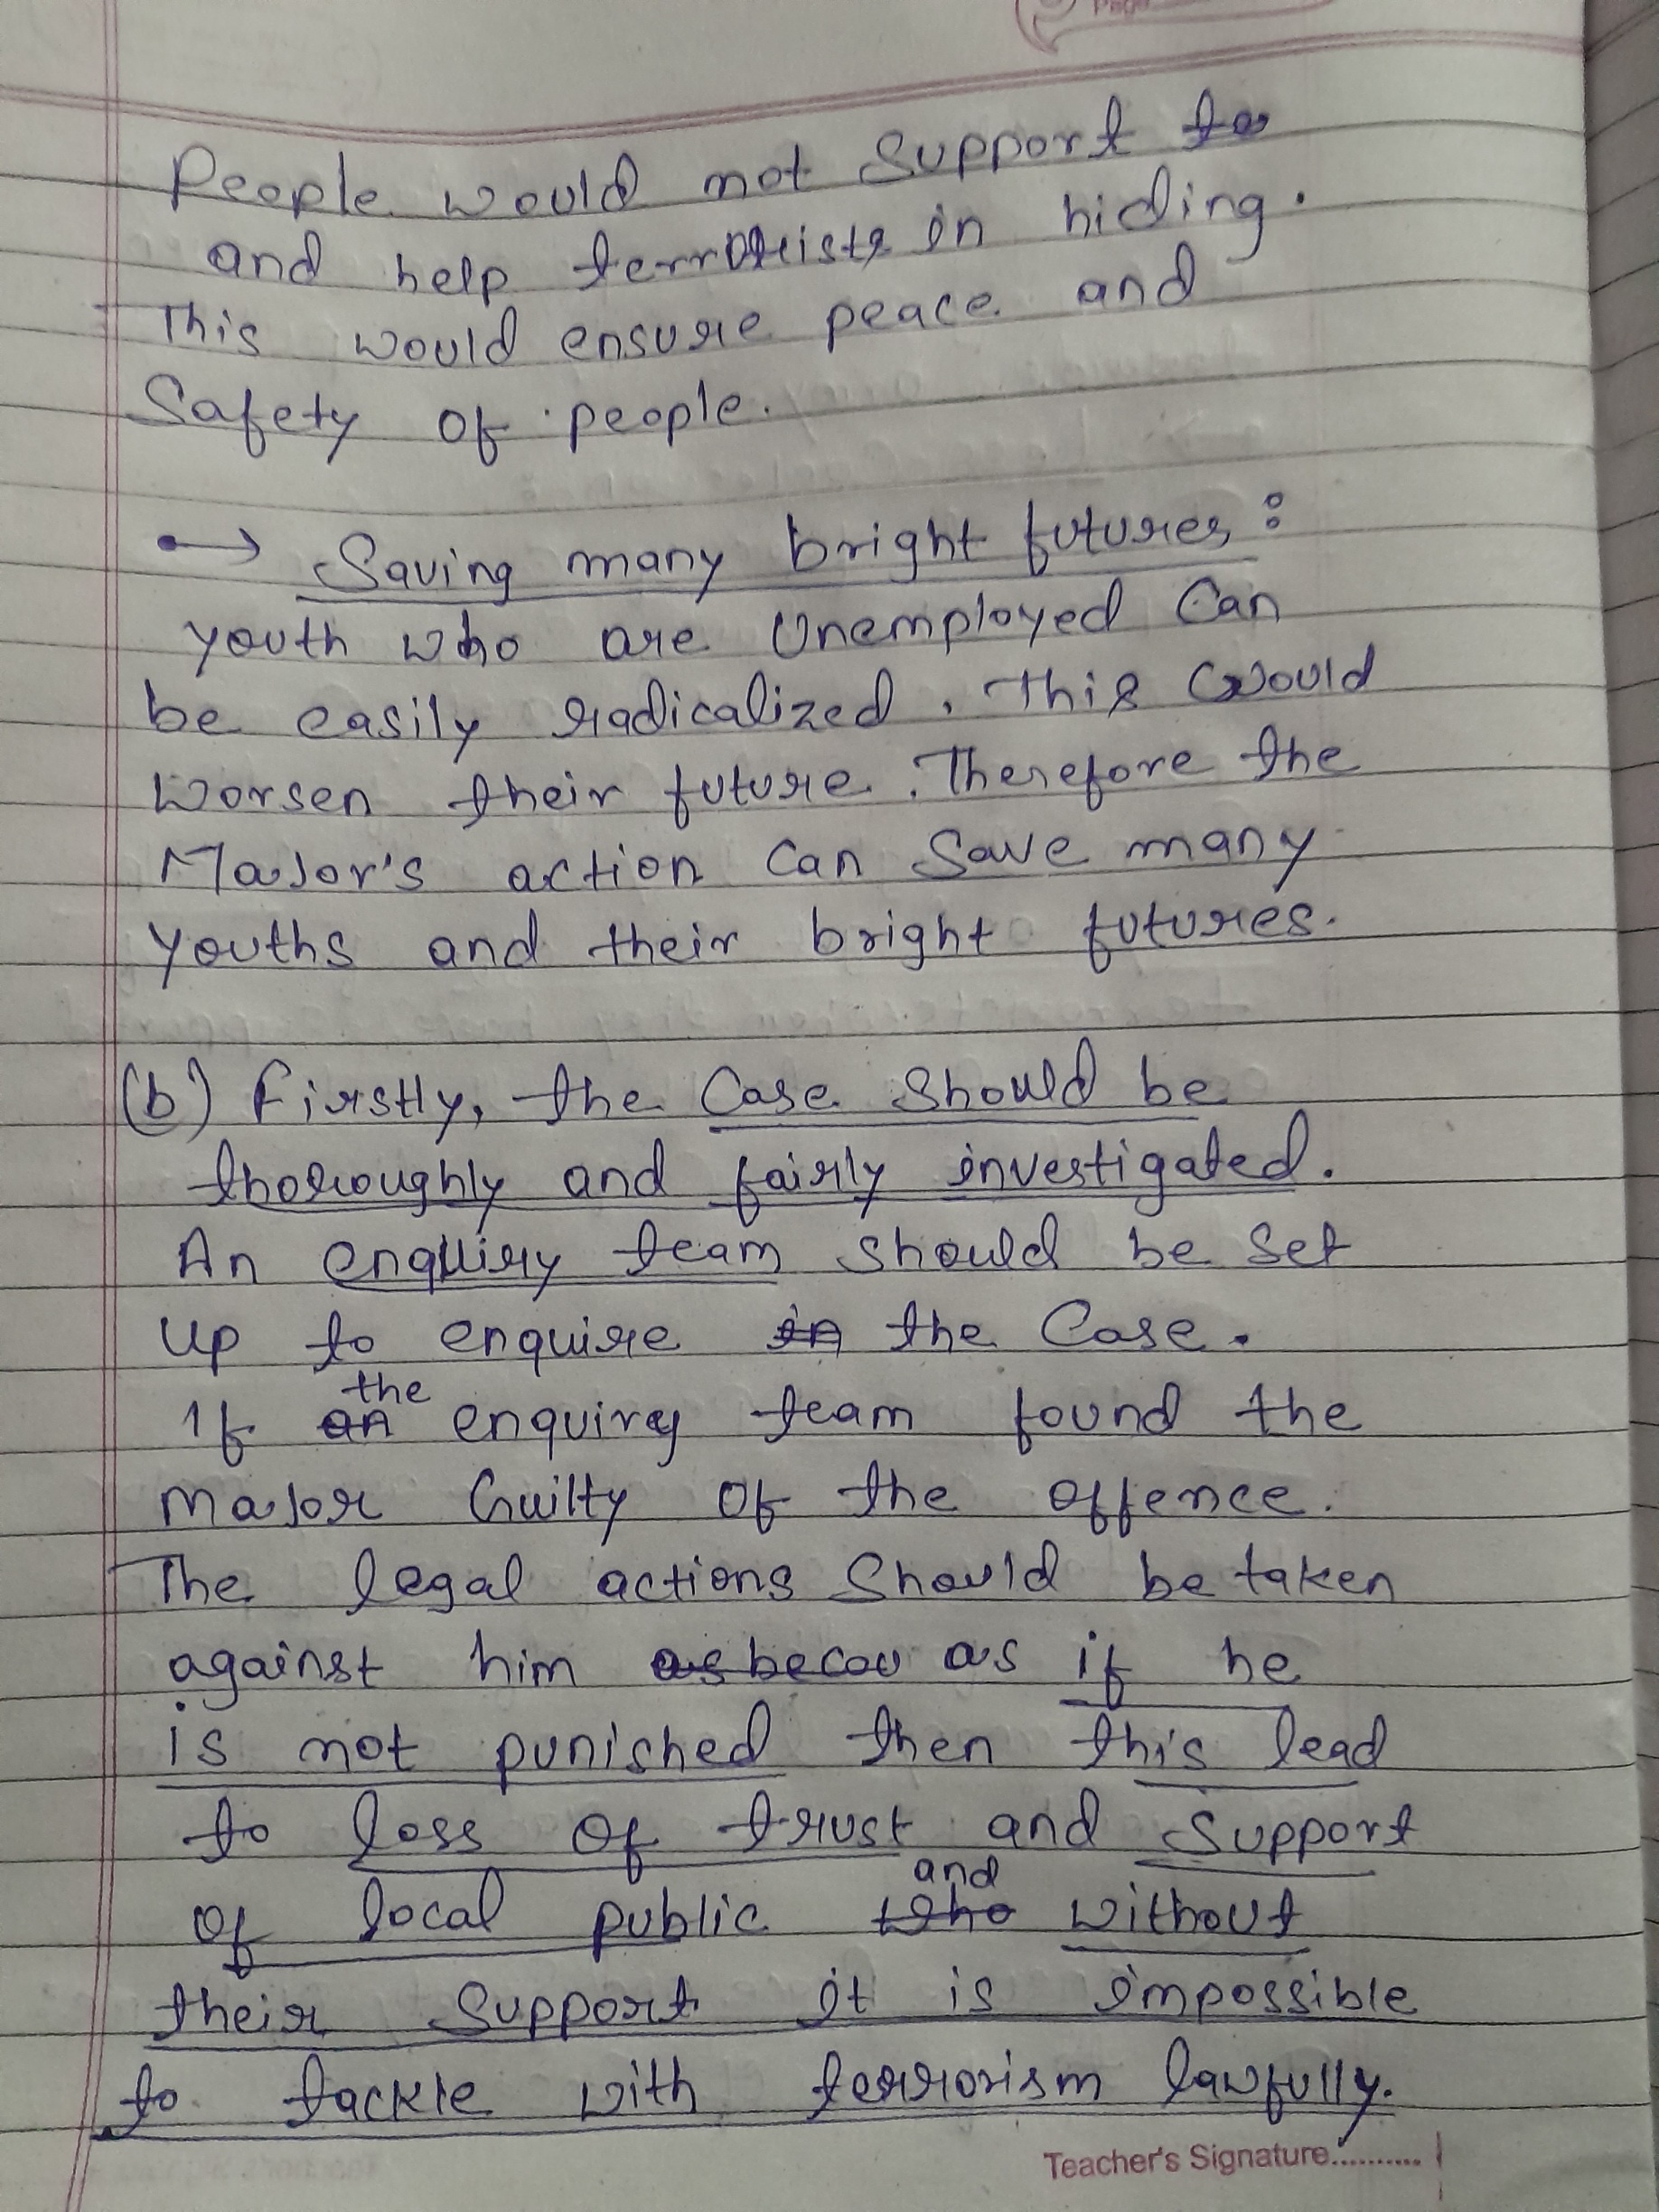 Page
People would not support to
and help terrorists in hiding.
This would ensure peace and
Safety of people.
→ Saving many bright futures:
youth who are Unemployed Can
be easily radicalized. This would
Worsen their future. Therefore the
Major's action can save many
youths and their bright futures.
(b) Firstly, the Case should be
thoroughly and fairly investigated.
An enquiry team should be set
up to enquire in the Case.
the
If an enquiry team found the
major Guilty of the offence.
The legal actions should be taken
against him as becau as if he
is not punished then this lead
to loss of trust and support
and
of local public who without
their support it is impossible
to tackle with terrorism lawfully.
Teacher's Signature..........